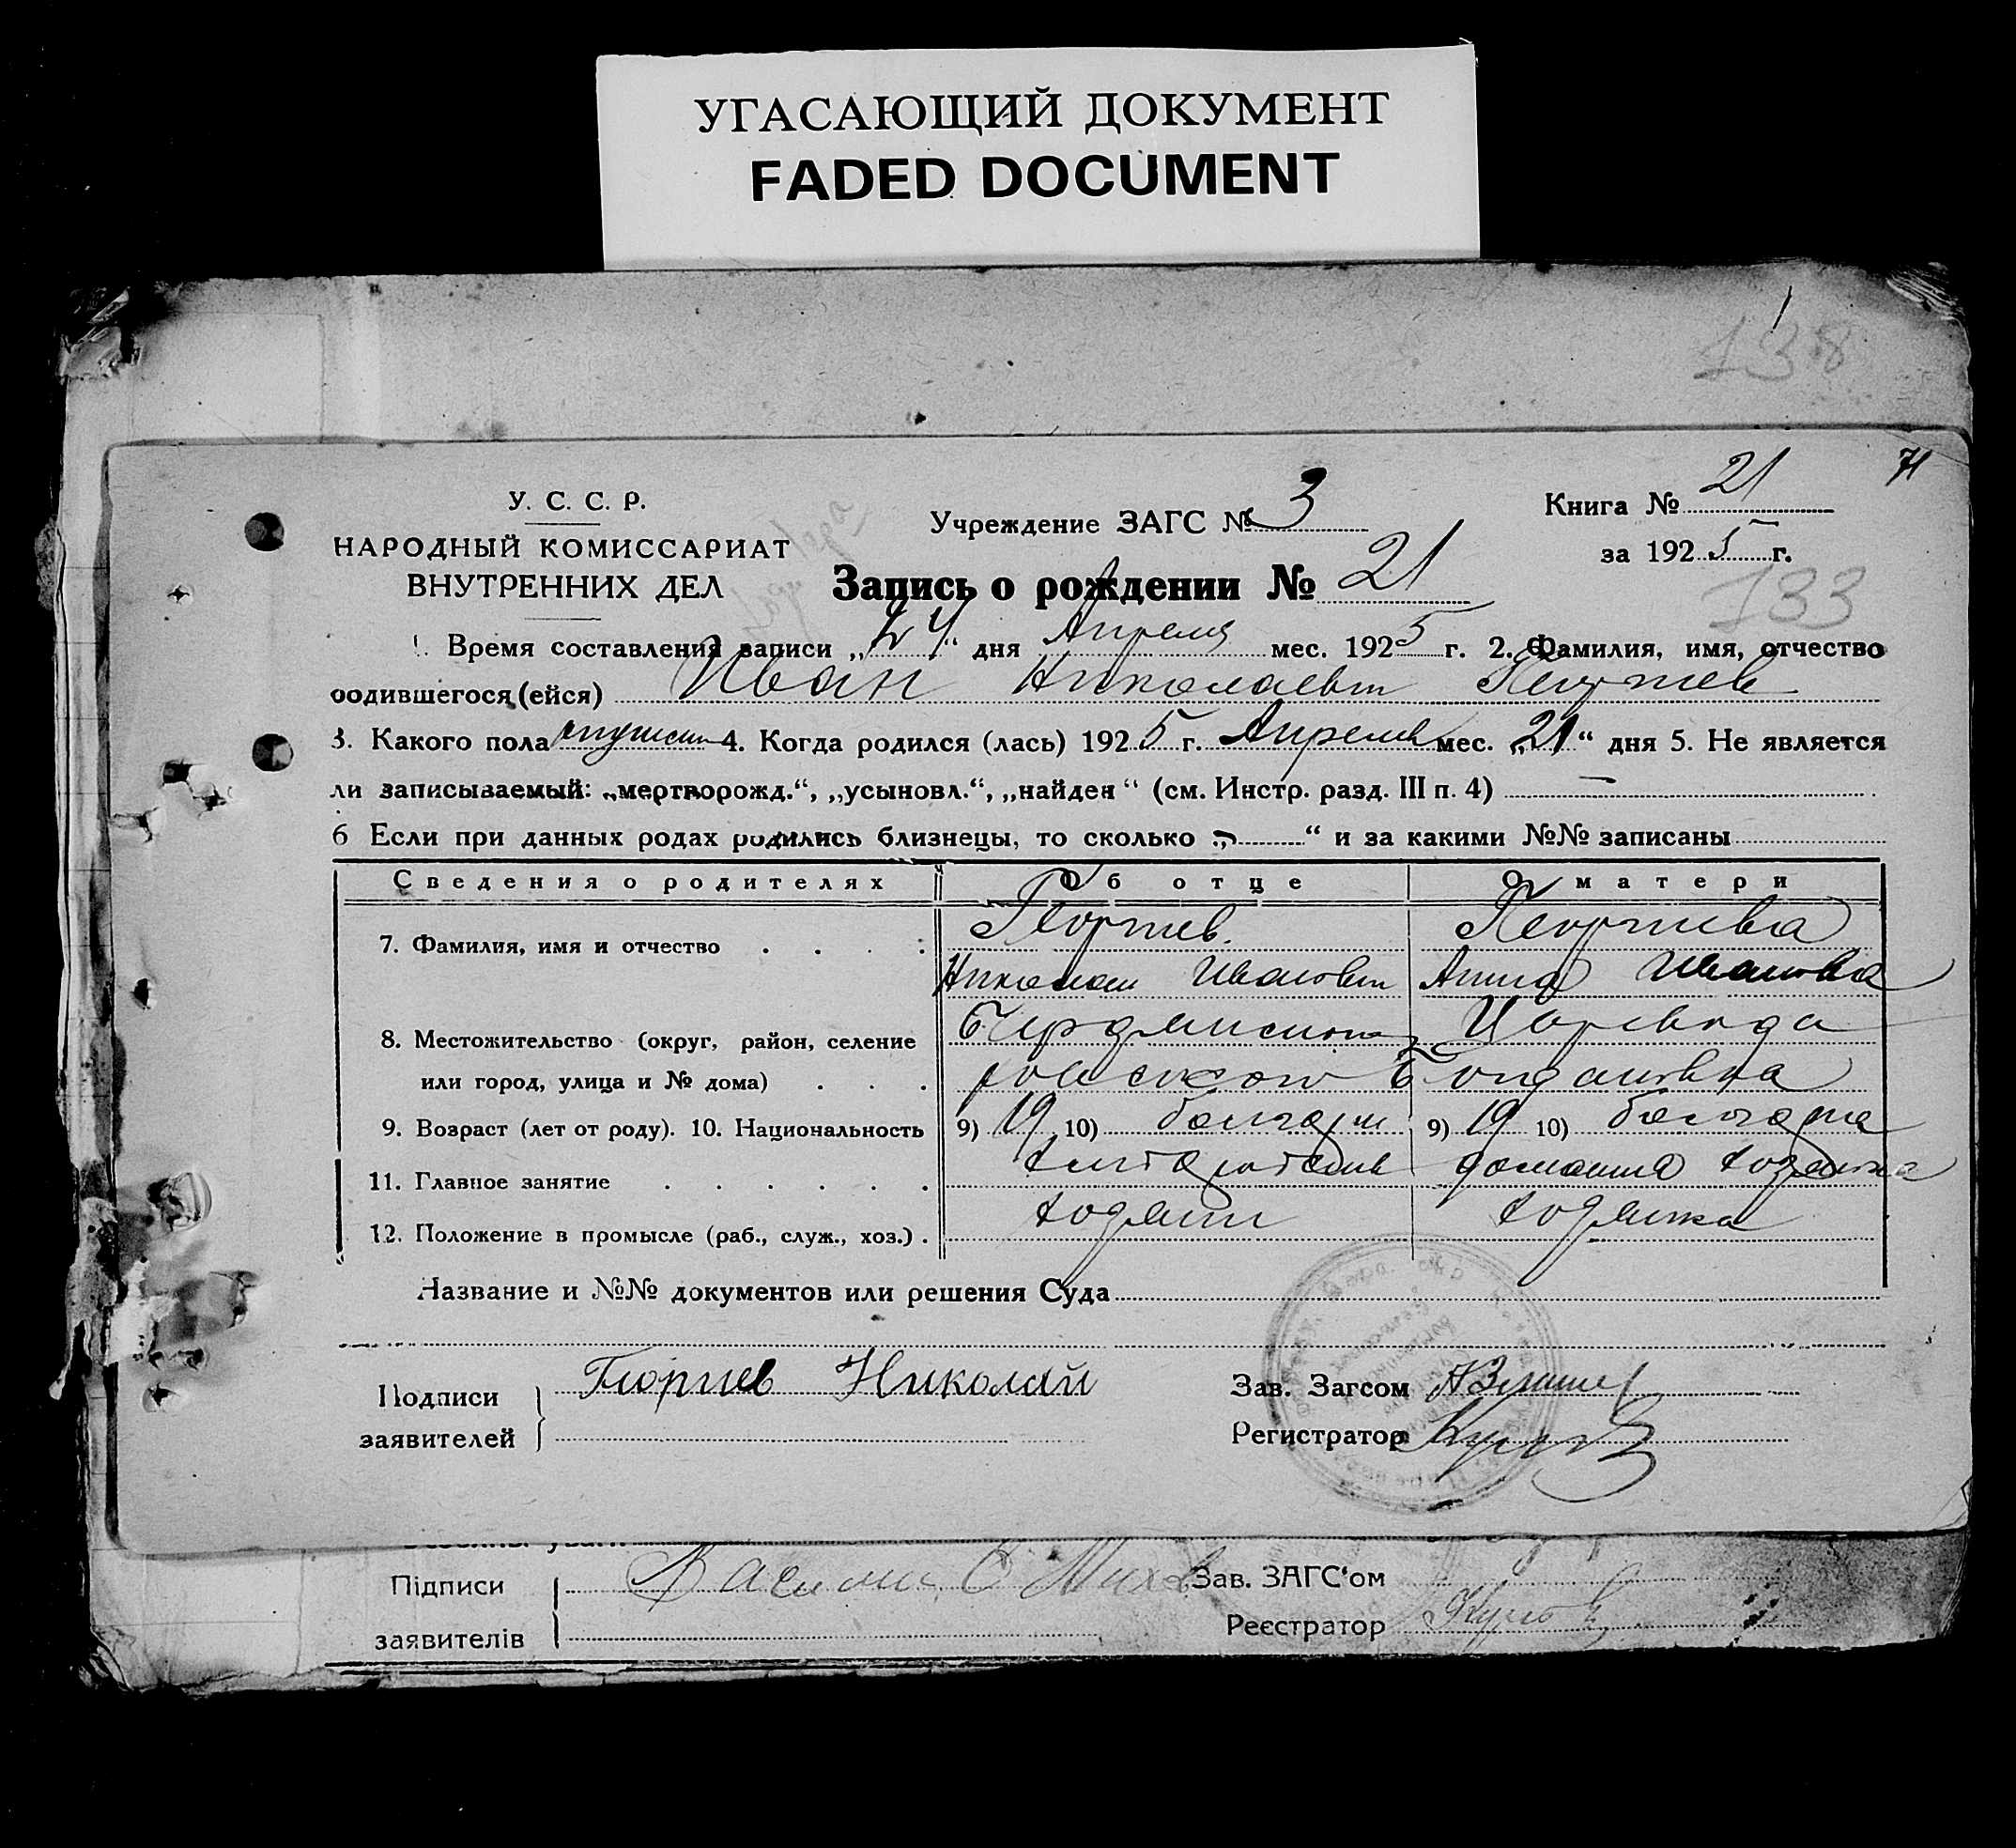 УГАСАЮЩИЙ ДОКУМЕНТ
FADED DOCUMENT
138
71
У. С. С. Р.
НАРОДНЫЙ КОМИССАРИАТ
ВНУТРЕННИХ ДЕЛ
Учреждение ЗАГС № 3
Книга № 21
за 1925 г.
Запись о рождении № 21
133
1. Время составления записи „24“ дня Апреля мес. 1925 г. 2. Фамилия, имя, отчество
родившегося (ейся) Иван Николаевич Георгиев
3. Какого пола 4. Когда родился (лась) 1925 г. Апреля мес. „21“ дня 5. Не является
ли записываемый: „мертворожд.“, „усыновл.“, „найден“ (см. Инстр. разд. III п. 4) —
6 Если при данных родах родились близнецы, то сколько „ “ и за какими №№ записаны
Сведения о родителях Об отце О матери
7. Фамилия, имя и отчество Георгиев. Георгиева
Николай Иванович Анна Иванова
8. Местожительство (округ, район, селение
или город, улица и № дома) Богдановка
9. Возраст (лет от роду). 10. Национальность 9) 19 10) болгарин 9) 19 10) болгарка
11. Главное занятие домашна
12. Положение в промысле (раб., служ., хоз.) хозяин хозяйка
Название и №№ документов или решения Суда
Подписи
заявителей
Георгиев Николай
Зав. Загсом
Регистратор
Підписи
заявителів
Зав. ЗАГС‘ом
Реєстратор